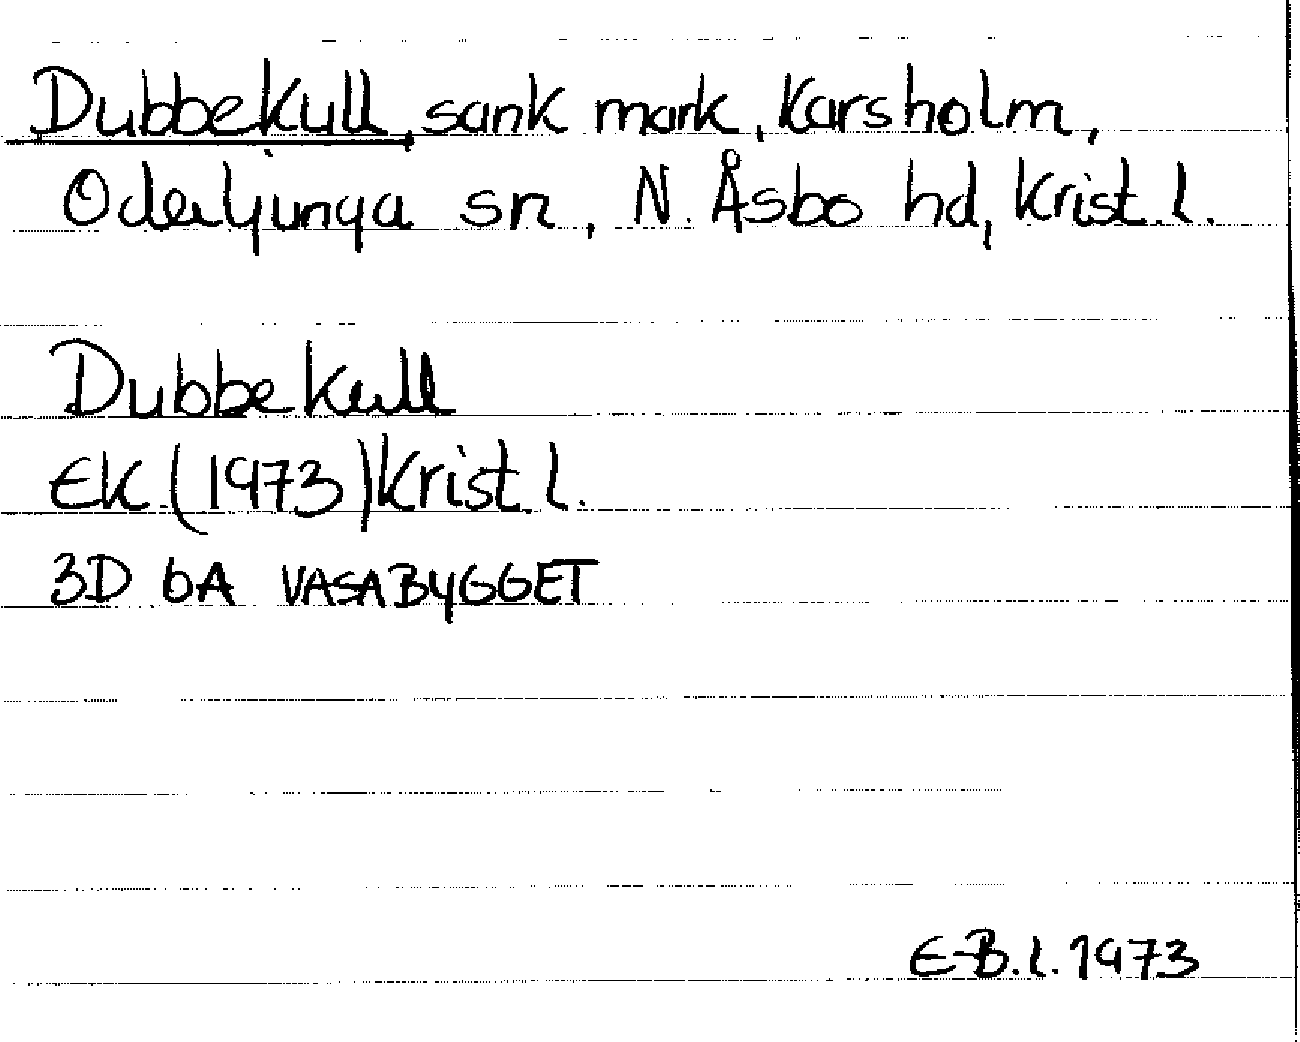 Dubbekull, sank mark, Karsholm,
Oderljunga sn, N. Åsbo hd, Krist. l.
Dubbekull
EK (1973) Krist. l.
3D 6A VASABYGGET
E-B.L. 1973